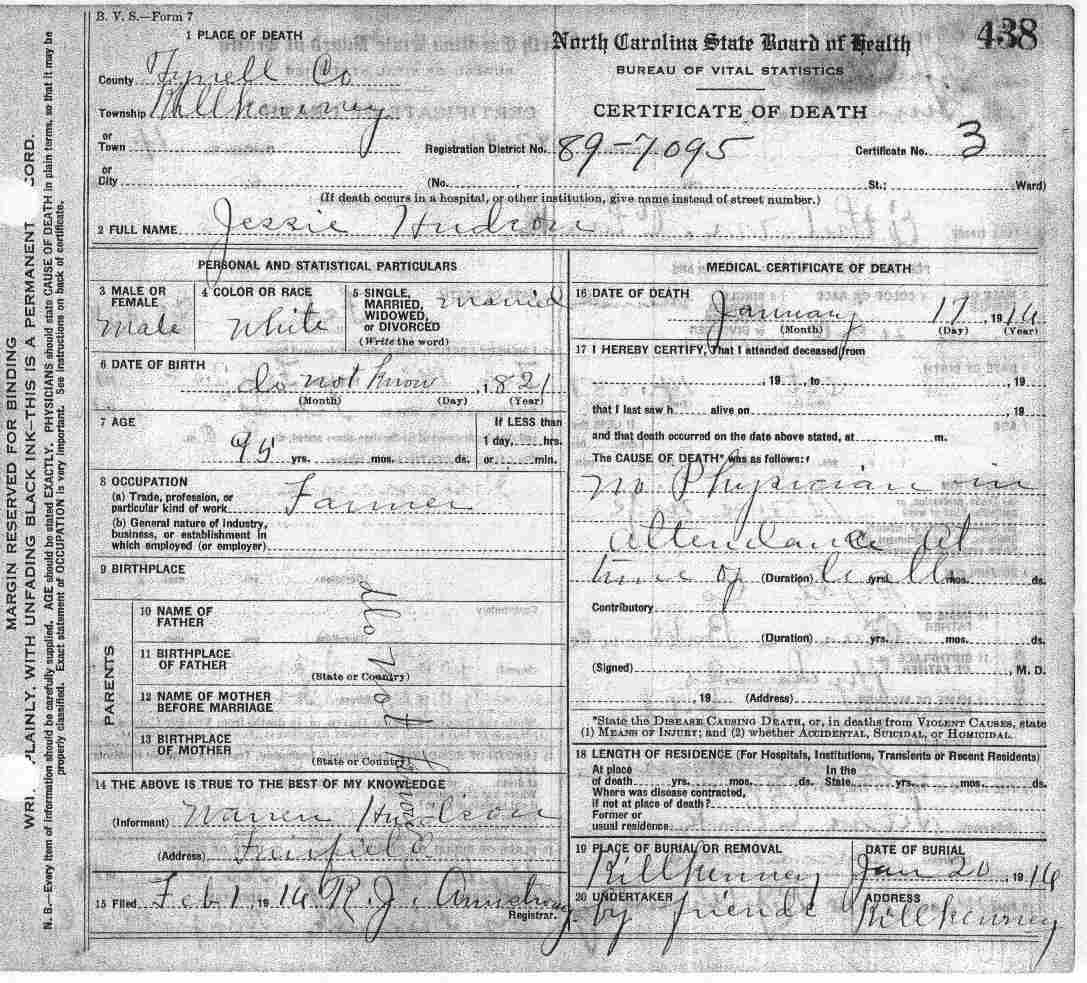 B. V. S.—Form 7
438
North Carolina State Board of Health
BUREAU OF VITAL STATISTICS
CERTIFICATE OF DEATH
1 PLACE OF DEATH
County Tyrrell Co
Township Killkenney
or
Town
Registration District No. 89-7095
Certificate No. 3
or
City
(No. St.; Ward)
(If death occurs in a hospital, or other institution, give name instead of street number.)
2 FULL NAME Jessie Hudson
PERSONAL AND STATISTICAL PARTICULARS
3 MALE OR FEMALE
Male
4 COLOR OR RACE
White
5 SINGLE, MARRIED, WIDOWED, or DIVORCED
(Write the word)
Married
6 DATE OF BIRTH
do not know, 1821
(Month) (Day) (Year)
7 AGE
95 yrs. mos. ds.
If LESS than
1 day, hrs.
or min.
8 OCCUPATION
(a) Trade, profession, or
particular kind of work Farmer
(b) General nature of industry,
business, or establishment in
which employed (or employer)
9 BIRTHPLACE
PARENTS
10 NAME OF
FATHER
11 BIRTHPLACE
OF FATHER
(State or Country)
12 NAME OF MOTHER
BEFORE MARRIAGE
13 BIRTHPLACE
OF MOTHER
(State or Country)
do not know
14 THE ABOVE IS TRUE TO THE BEST OF MY KNOWLEDGE
(Informant) Warren Hudson
(Address) Fairfield
15 Filed Feb 1 1916 R. J. Armstrong
Registrar.
MEDICAL CERTIFICATE OF DEATH
16 DATE OF DEATH
January 17, 1916
(Month) (Day) (Year)
17 I HEREBY CERTIFY, That I attended deceased from
, 19 , to , 19
that I last saw h alive on , 19
and that death occurred on the date above stated, at m.
The CAUSE OF DEATH* was as follows:
no Physician in
attendance at
time of (Duration) yrs. mos. ds.
Contributory
(Duration) yrs. mos. ds.
(Signed) , M. D.
, 19 (Address)
*State the DISEASE CAUSING DEATH, or, in deaths from VIOLENT CAUSES, state
(1) MEANS OF INJURY; and (2) whether ACCIDENTAL, SUICIDAL, or HOMICIDAL.
18 LENGTH OF RESIDENCE (For Hospitals, Institutions, Transients or Recent Residents)
At place
of death yrs. mos. ds. In the State yrs. mos. ds.
Where was disease contracted,
if not at place of death?
Former or
usual residence
19 PLACE OF BURIAL OR REMOVAL
Killkenney
DATE OF BURIAL
Jan 20, 1916
20 UNDERTAKER
by friends
ADDRESS
Killkenney
MARGIN RESERVED FOR BINDING
PLAINLY, WITH UNFADING BLACK INK—THIS IS A PERMANENT
N. B.—Every item of information should be carefully supplied. AGE should be stated EXACTLY. PHYSICIANS should state CAUSE OF DEATH in plain terms, so that it may be
properly classified. Exact statement of OCCUPATION is very important. See instructions on back of certificate.